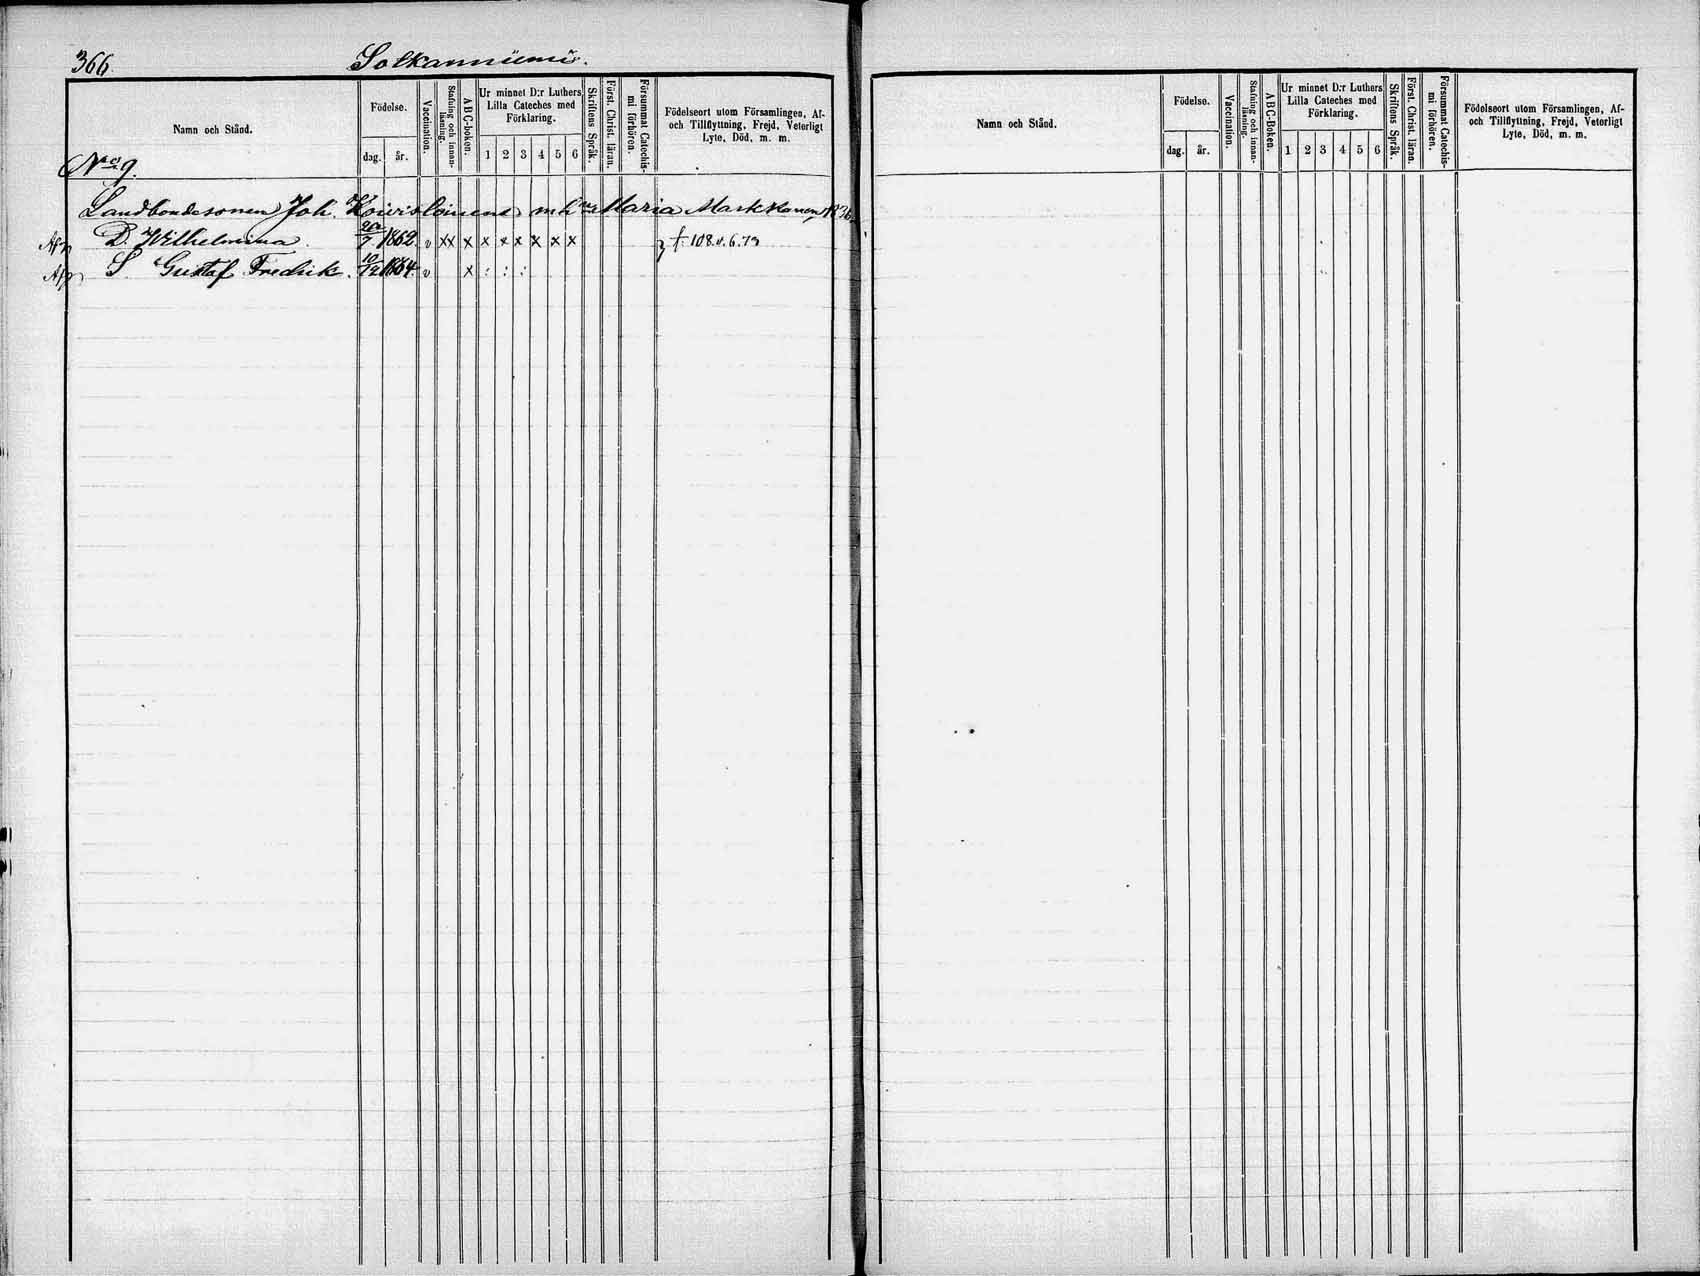 366.
Solkanniemi.
Namn och Stånd.
Födelse.
dag. år.
Vaccination.
Stafning och innanläsning.
ABC-boken.
Ur minnet D:r Luthers Lilla Cateches med Förklaring.
1 2 3 4 5 6
Skriftens Språk.
Först. Christ. läran.
Försummat Catechismi förhören.
Födelseort utom Församlingen, Af- och Tillflyttning, Frejd, Veterligt Lyte, Död, m. m.
No 9.
Landbondesonen Joh. Koivistoinens mh Maria Markkanen
D. Wilhelmina 20/7 1862. v xx x x x x x x x f. 108. v. 6. 73
S Gustaf Fredrik. 10/12 1864. v x : : :
Namn och Stånd.
Födelse.
dag. år.
Vaccination.
Stafning och innanläsning.
ABC-Boken.
Ur minnet D:r Luthers Lilla Cateches med Förklaring.
1 2 3 4 5 6
Skriftens Språk.
Först. Christ. läran.
Försummat Catechismi förhören.
Födelseort utom Församlingen, Af- och Tillflyttning, Frejd, Veterligt Lyte, Död, m. m.